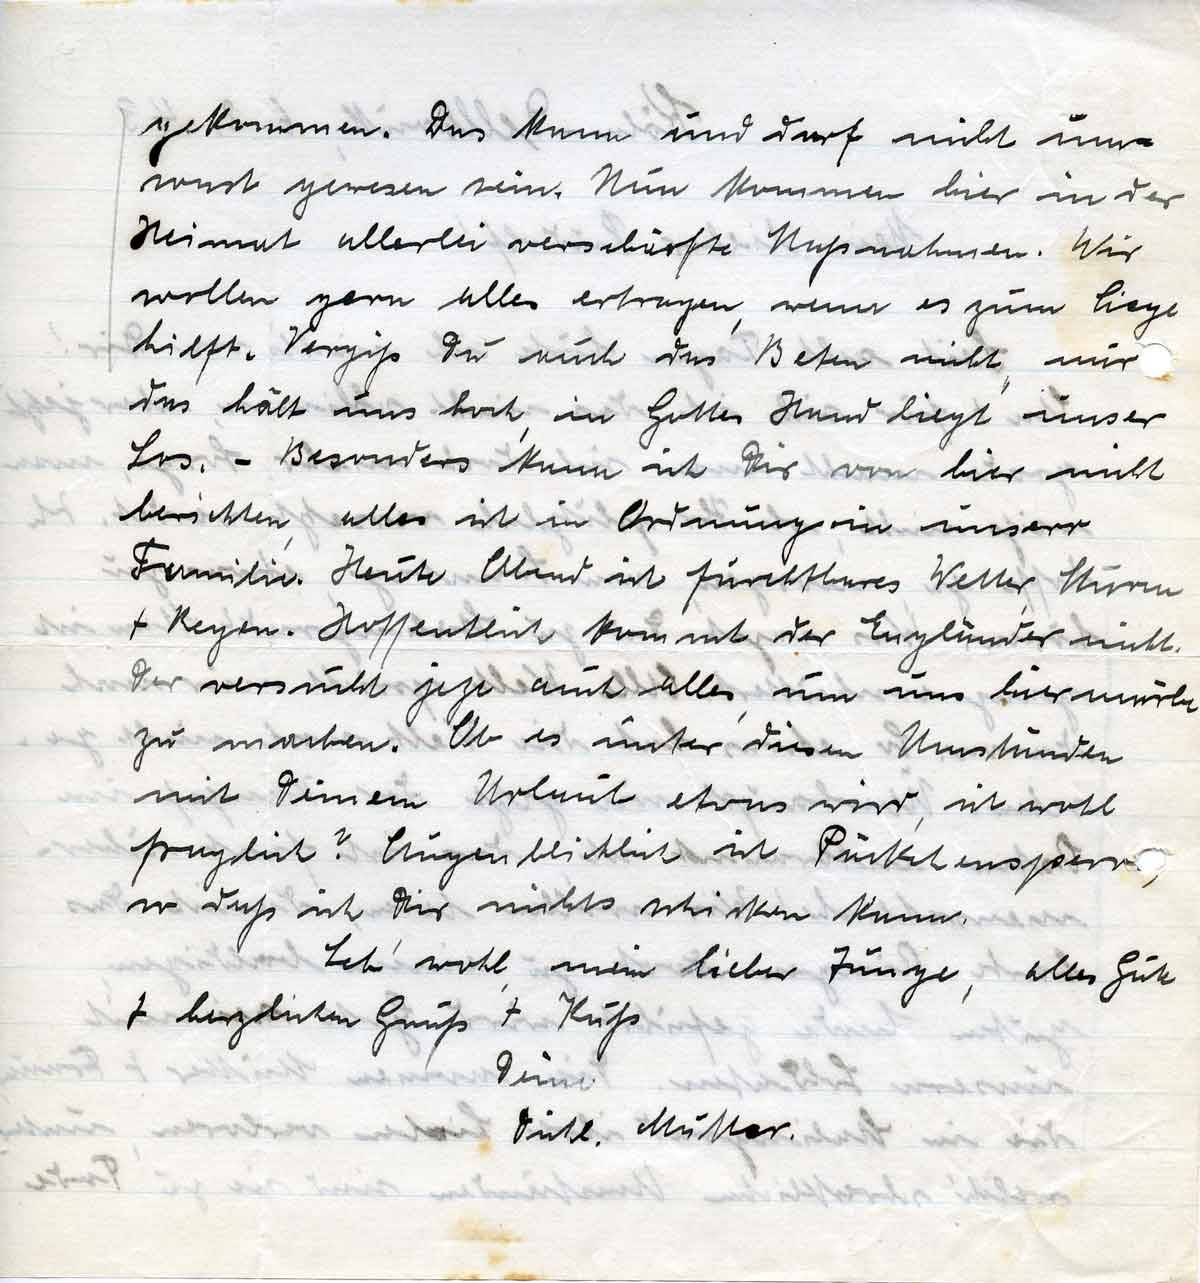 gekommen. Das kann und darf nicht um-
sonst gewesen sein. Nun kommen hier in der
Heimat allerlei verschärfte Maßnahmen. Wir
wollen gern alles ertragen, wenn es zum Siege
hilft. Vergiß Du auch das Beten nicht, nur
das hält uns hoch, in Gottes Hand liegt unser
Los. – Besonders kann ich Dir von hier nicht
berichten, alles ist in Ordnung in unserr
Familie. Heute Abend ist furchtbares Wetter, Sturm
+ Regen. Hoffentlich kommt der Engländer nicht.
Der versucht jetzt auch alles, um uns hier mürbe
zu machen. Ob es unter diesen Umständen
mit Deinem Urlaub etwas wird, ist wohl
fraglich? Augenblicklich ist Päckchensperre,
so daß ich Dir nichts schicken kann.
Leb' wohl, mein lieber Junge, alles Gute
+ herzlichen Gruß + Kuß
Deine
Dichl. Mutter.